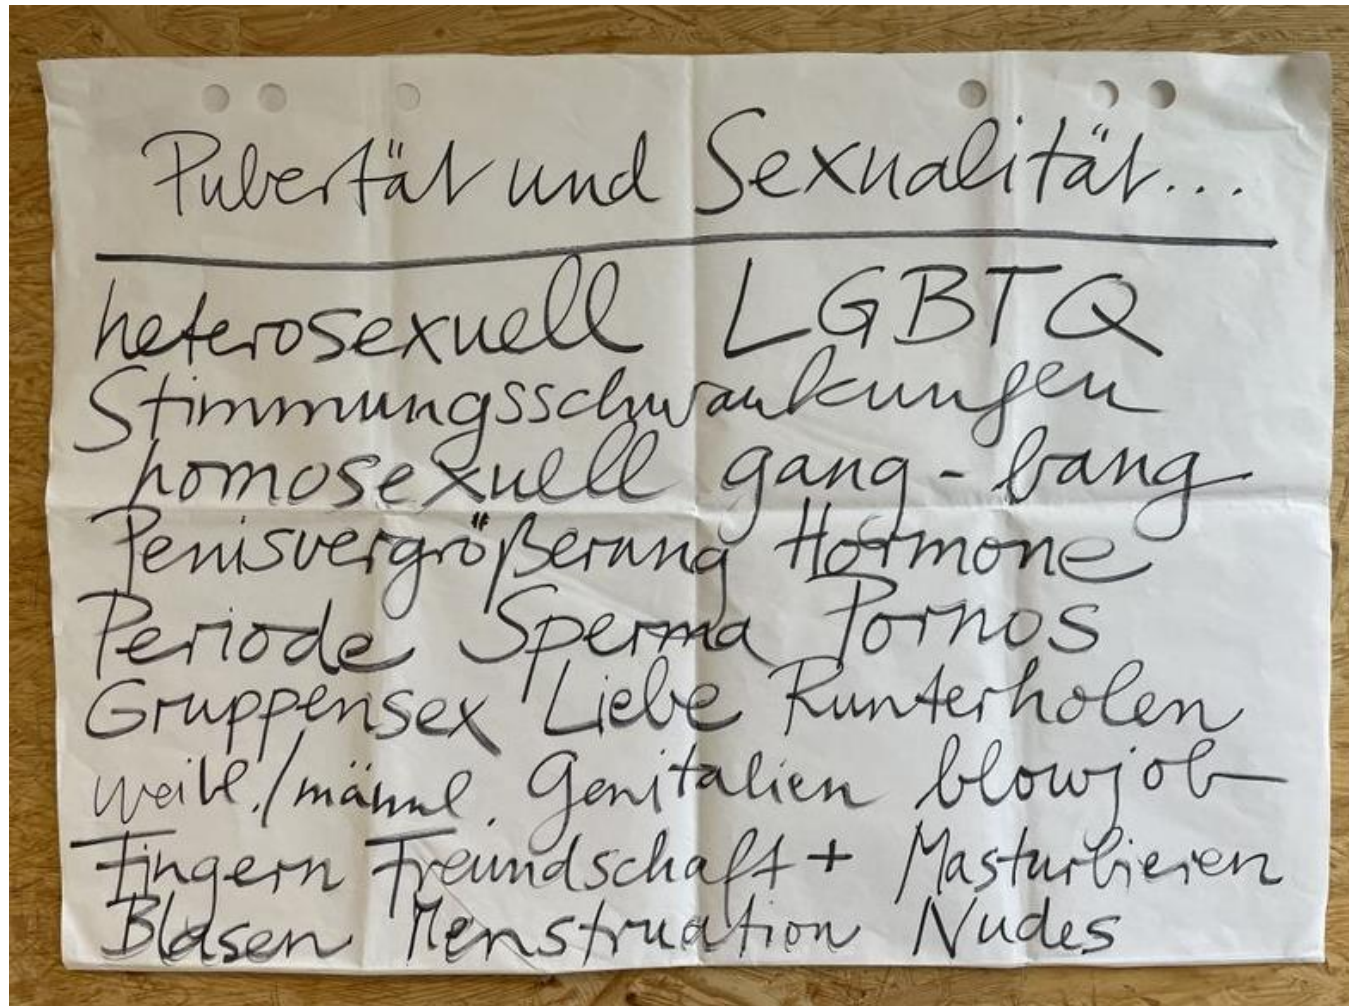 Pubertät und Sexualität...
heterosexuell LGBTQ
Stimmungsschwankungen
homosexuell gang-bang
Penisvergrößerung Hormone
Periode Sperma Pornos
Gruppensex Liebe Runterholen
weibl./männl. Genitalien blowjob
Fingern Freundschaft + Masturbieren
Blasen Menstruation Nudes